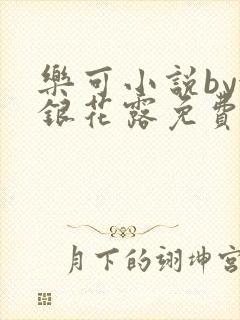 樂可小說by
銀花露免費
月下的翊坤宮